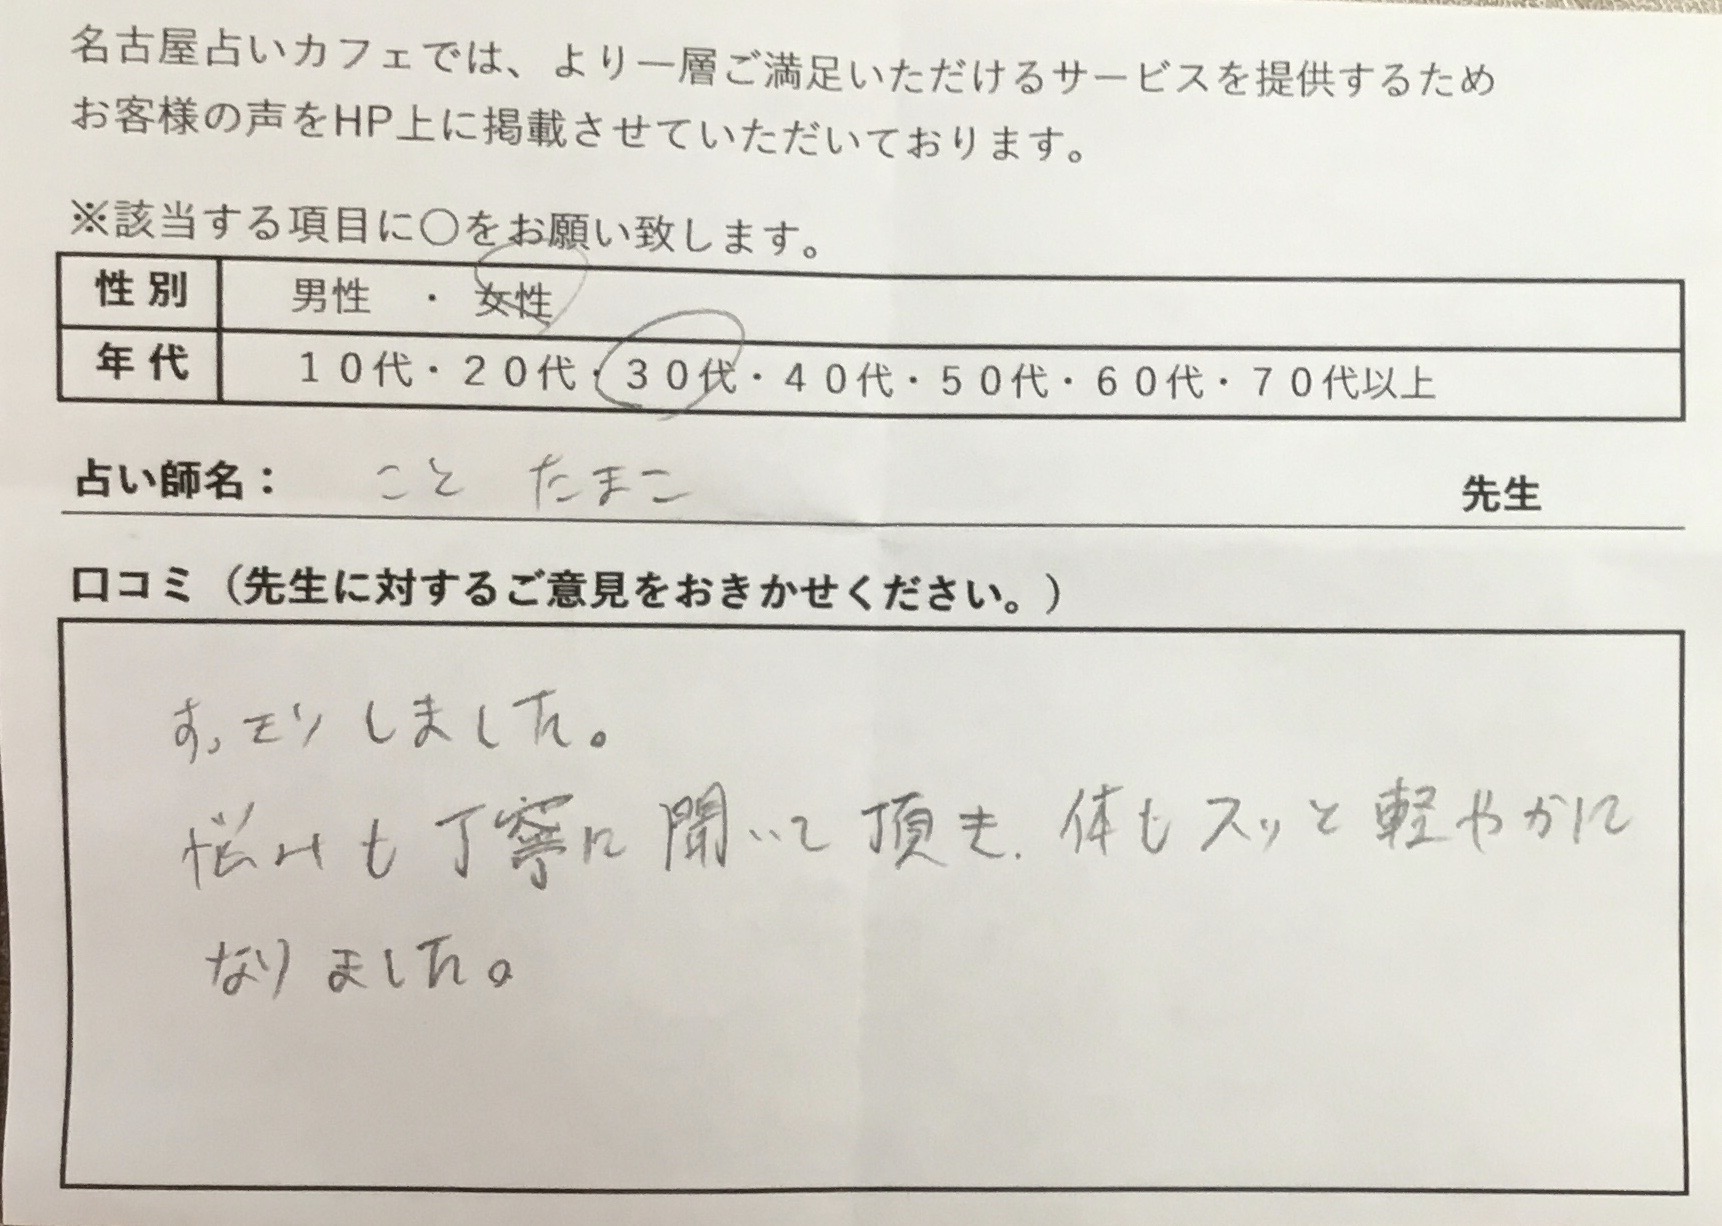 名古屋占いカフェでは、より一層ご満足いただけるサービスを提供するため
お客様の声をHP上に掲載させていただいております。
※該当する項目に〇をお願い致します。
性別 男性 ・ 女性
年代 10代・20代・30代・40代・50代・60代・70代以上
占い師名： こと たまこ 先生
口コミ（先生に対するご意見をおきかせください。）
すっきりしました。
悩みも丁寧に聞いて頂き、体もスッと軽やかに
なりました。